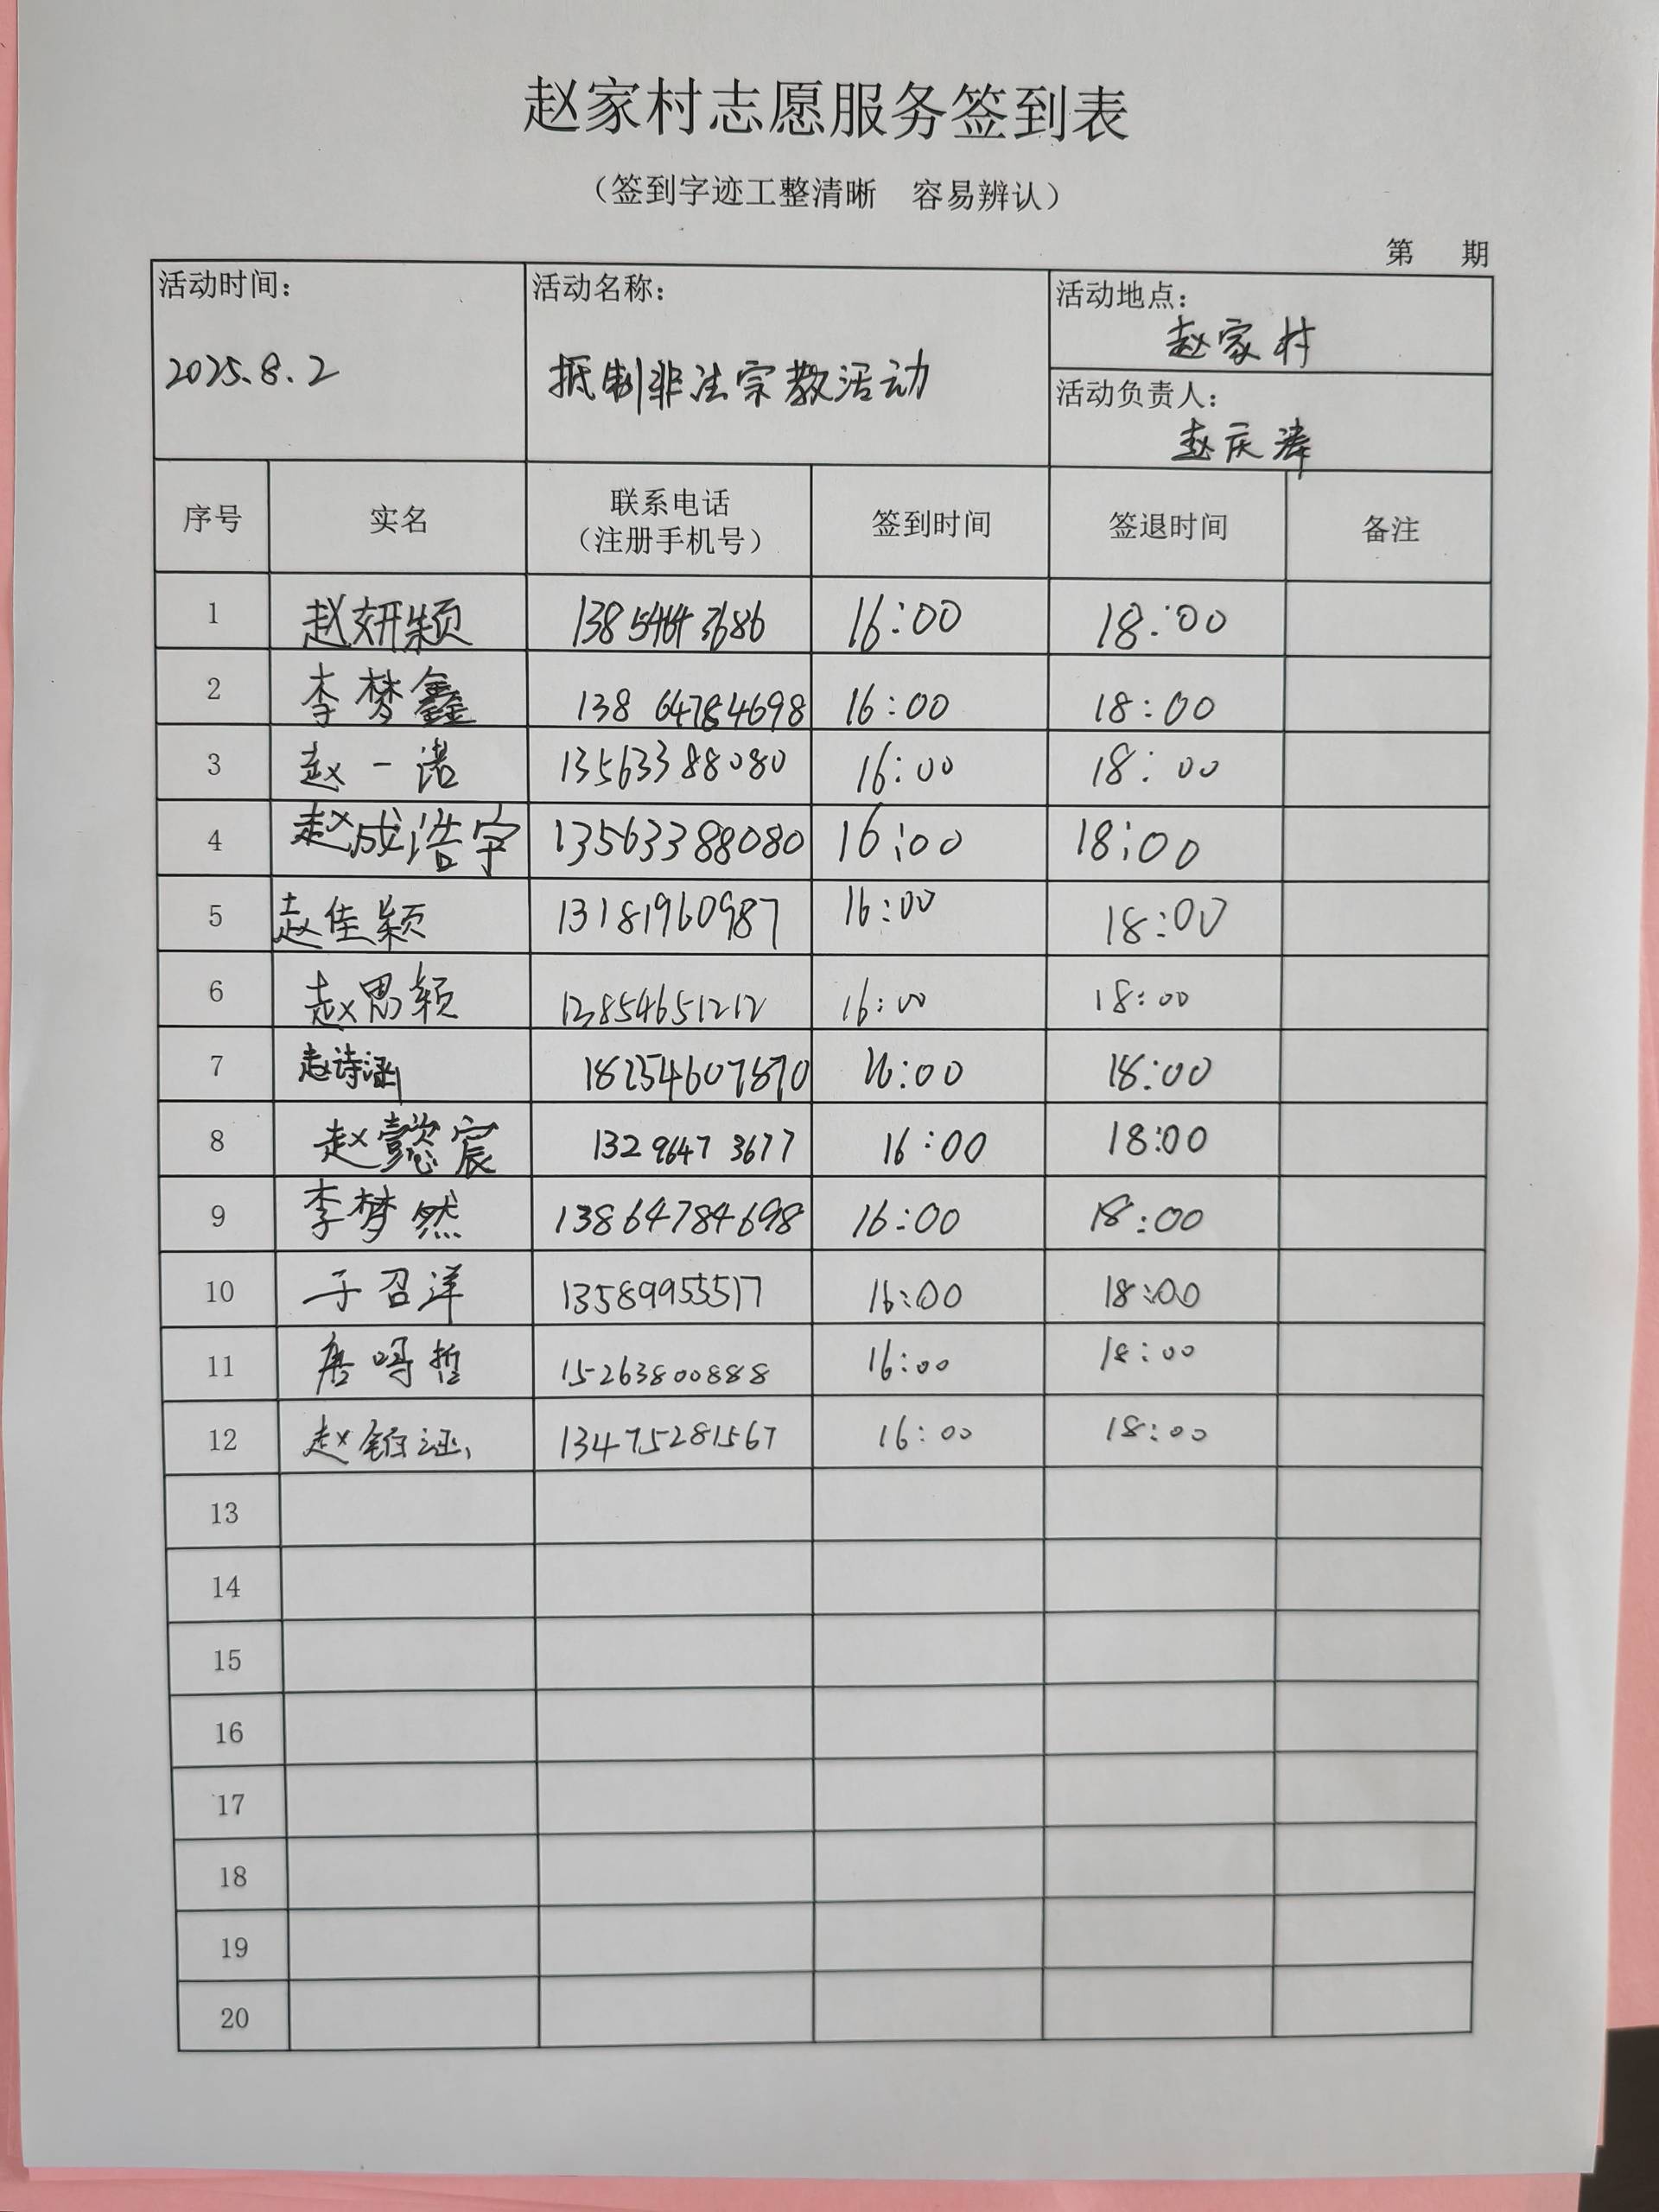 赵家村志愿服务签到表
（签到字迹工整清晰　容易辨认）
第　期
活动时间： 活动名称： 活动地点：
赵家村
2025.8.2 抵制非法宗教活动
活动负责人：
赵庆
序号 实名 联系电话 签到时间 签退时间 备注
（注册手机号）
1 赵妍颖 13854643686 16:00 18:00
2 李梦鑫 13864784698 16:00 18:00
3 赵一诺 13563388080 16:00 18:00
4 赵成浩宇 13563388080 16:00 18:00
5 赵佳颖 13181960987 16:00 18:00
6 赵思颖 13854651212 16:00 18:00
7 赵诗涵 18254607870 16:00 18:00
8 赵懿宸 13296473677 16:00 18:00
9 李梦然 13864784698 16:00 18:00
10 于召洋 13589955517 16:00 18:00
11 唐鸣哲 15263800888 16:00 18:00
12 赵 13475281567 16:00 18:00
13
14
15
16
17
18
19
20